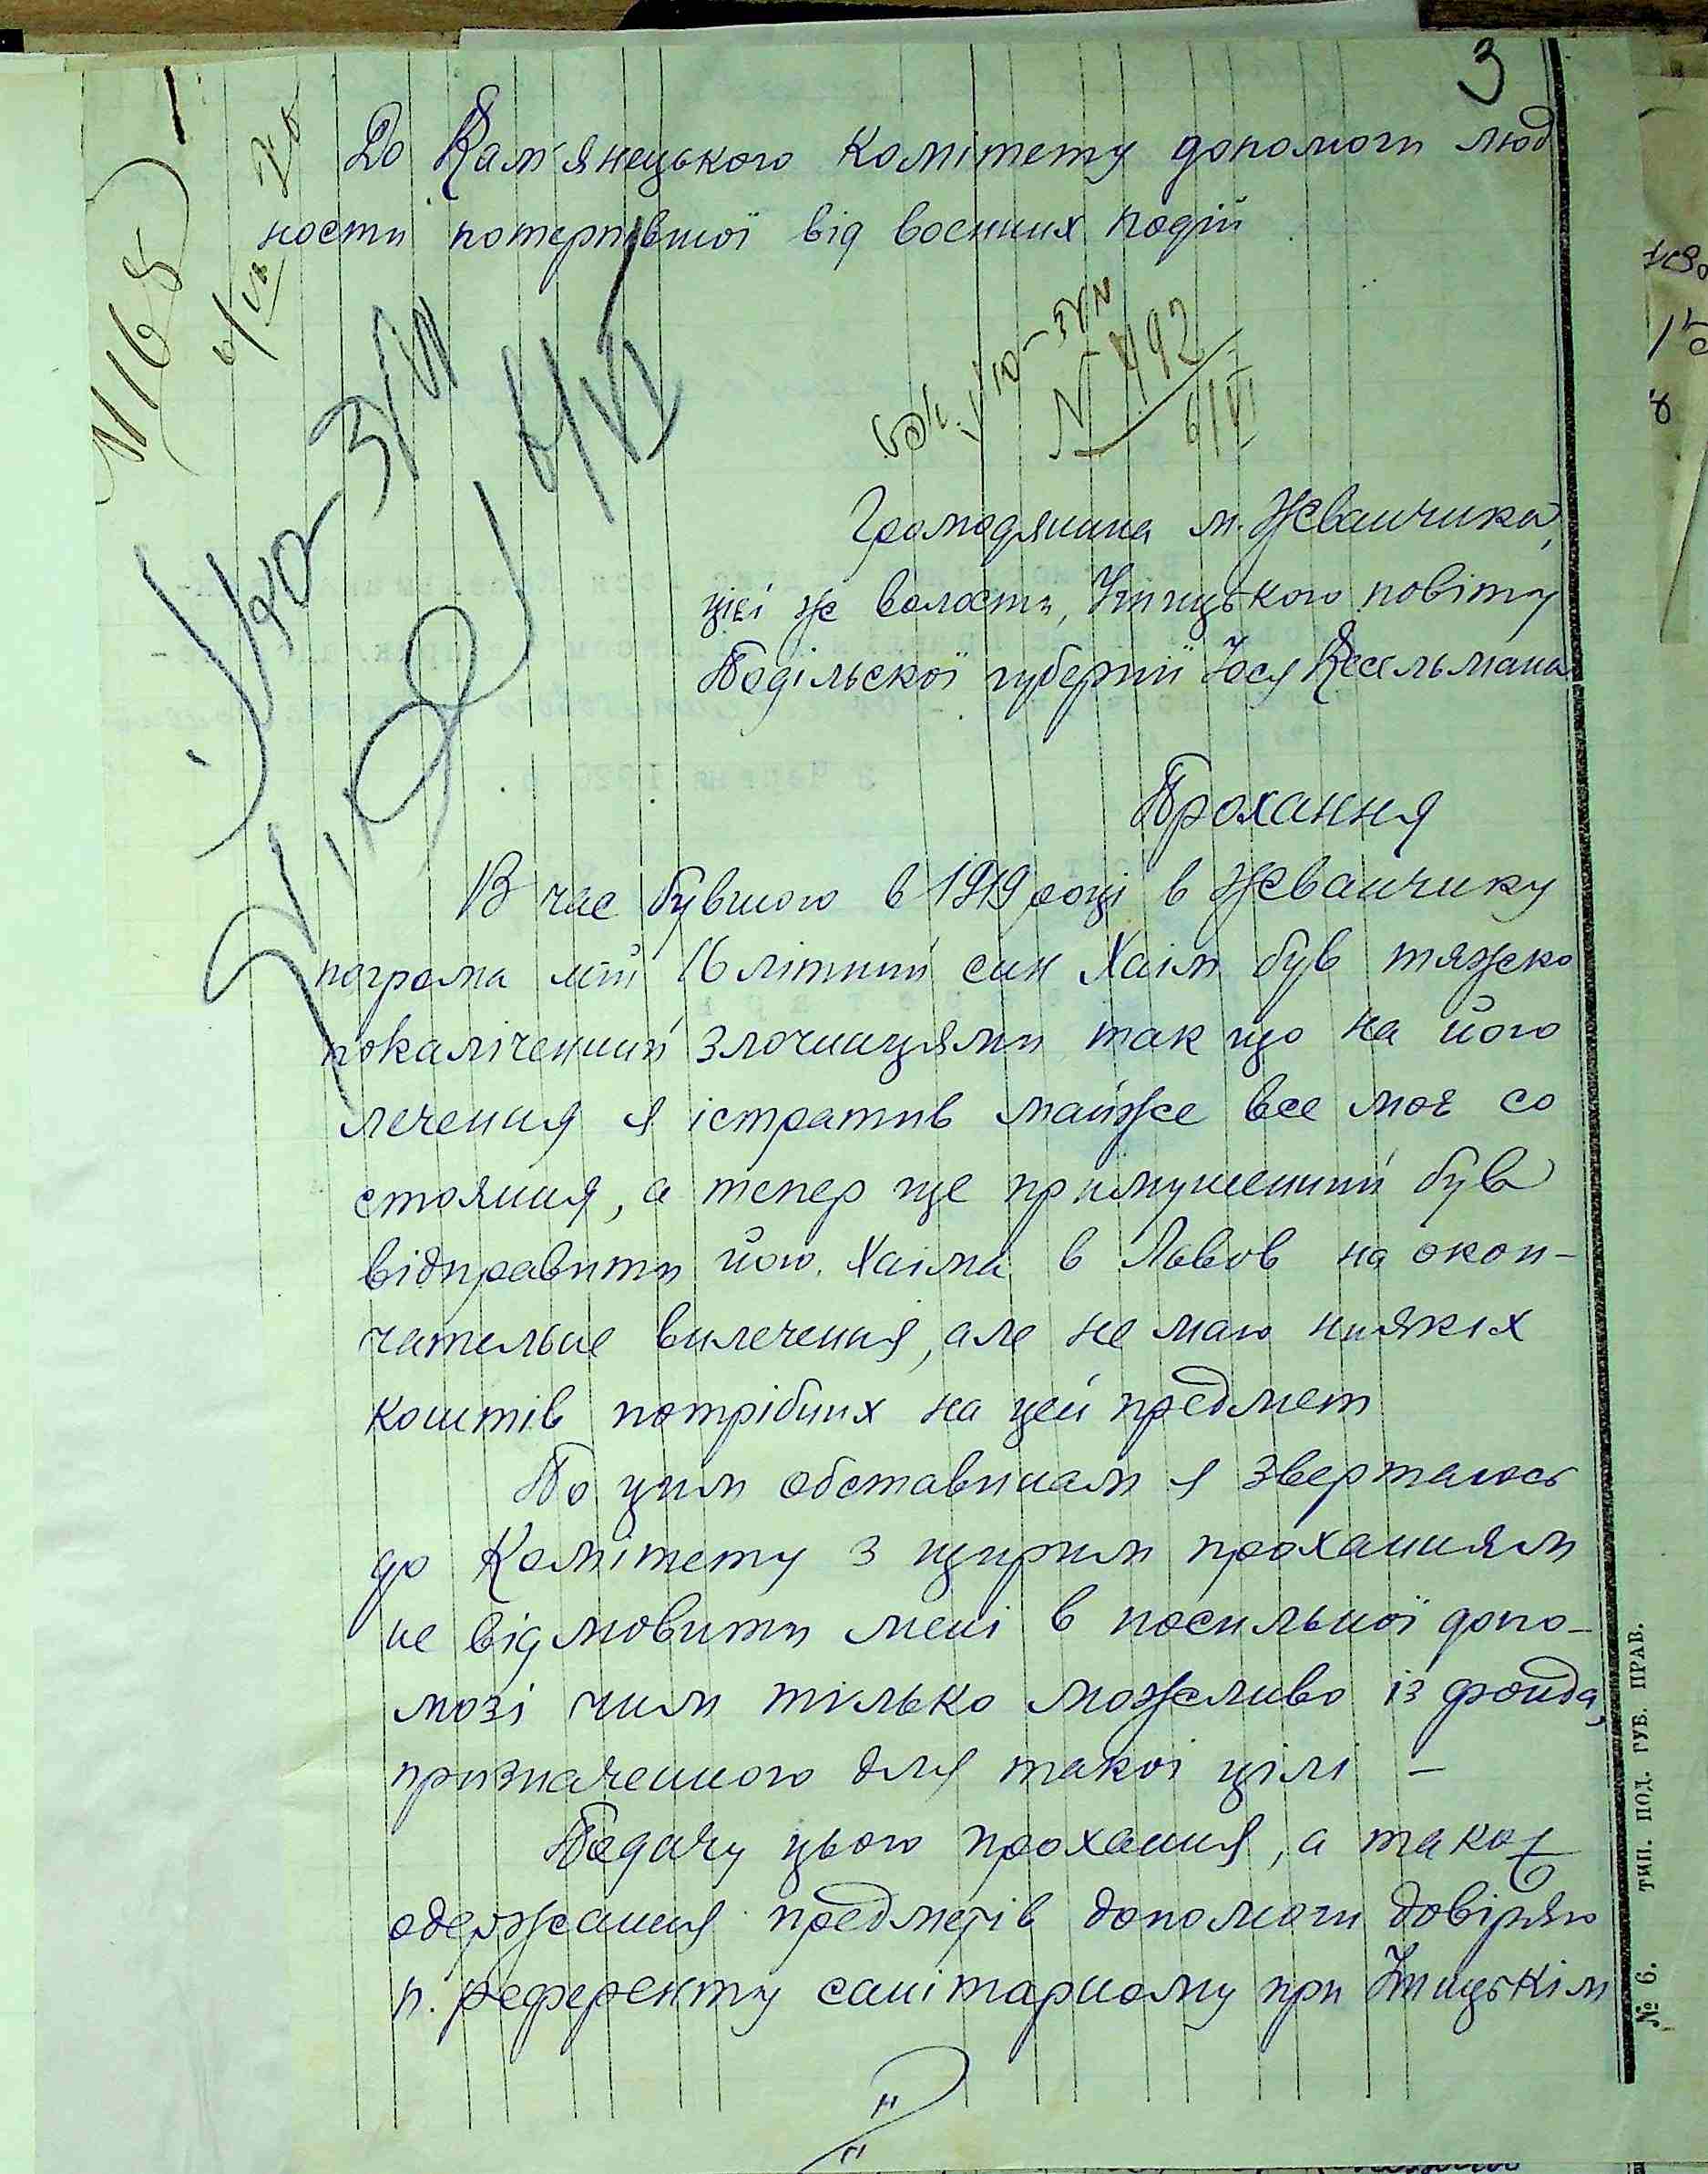 3
До Кам'янецького Комітету допомоги люд
ности потерпівшої від воєнних подій
N 168
6/VI 20
N 492
6/VI
6/VI
Громодянина м. Жванчика,
цієї же волости, Ушицького повіту
Подільскої губернії Йося Кесельмана
Прохання
В час бувшого в 1919 році в Жванчику
погрома мій 16 літний син Хаім був тяжско
покалічений злочинцями так що на його
лечения я істратив майже все моє со
стояния, а тепер ще примушений був
відправити його Хаіма в Львов на окон-
чательне вилечения, але не маю ниякіх
коштів потрібних на цей предмет
По цим обставинам я звертаюсь
до Комітету з щирим проханиям
не відмовити мені в посильної допо-
мозі чим тілько можливо із фонда,
призначенного для такої цілі –
Подачу цього прохания, а також
одержания предметів допомоги довіряю
п. референту санітарному при Ушицькім
№ 6. ТИП. ПОД. ГУБ. ПРАВ.